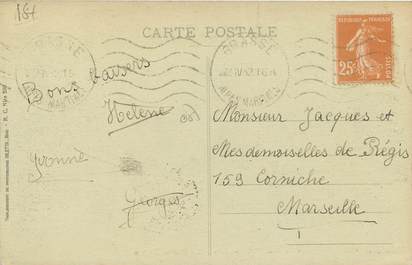 184
CARTE POSTALE
GRASSE
GRASSE
ALPES MARIMES
REPUBLIQUE FRANÇAISE
25c
POSTES
Bons baisers
Hélène
Yvonne
Georges
Monsieur Jacques et
Mesdemoiselles de Régis
159 Corniche
Marseille